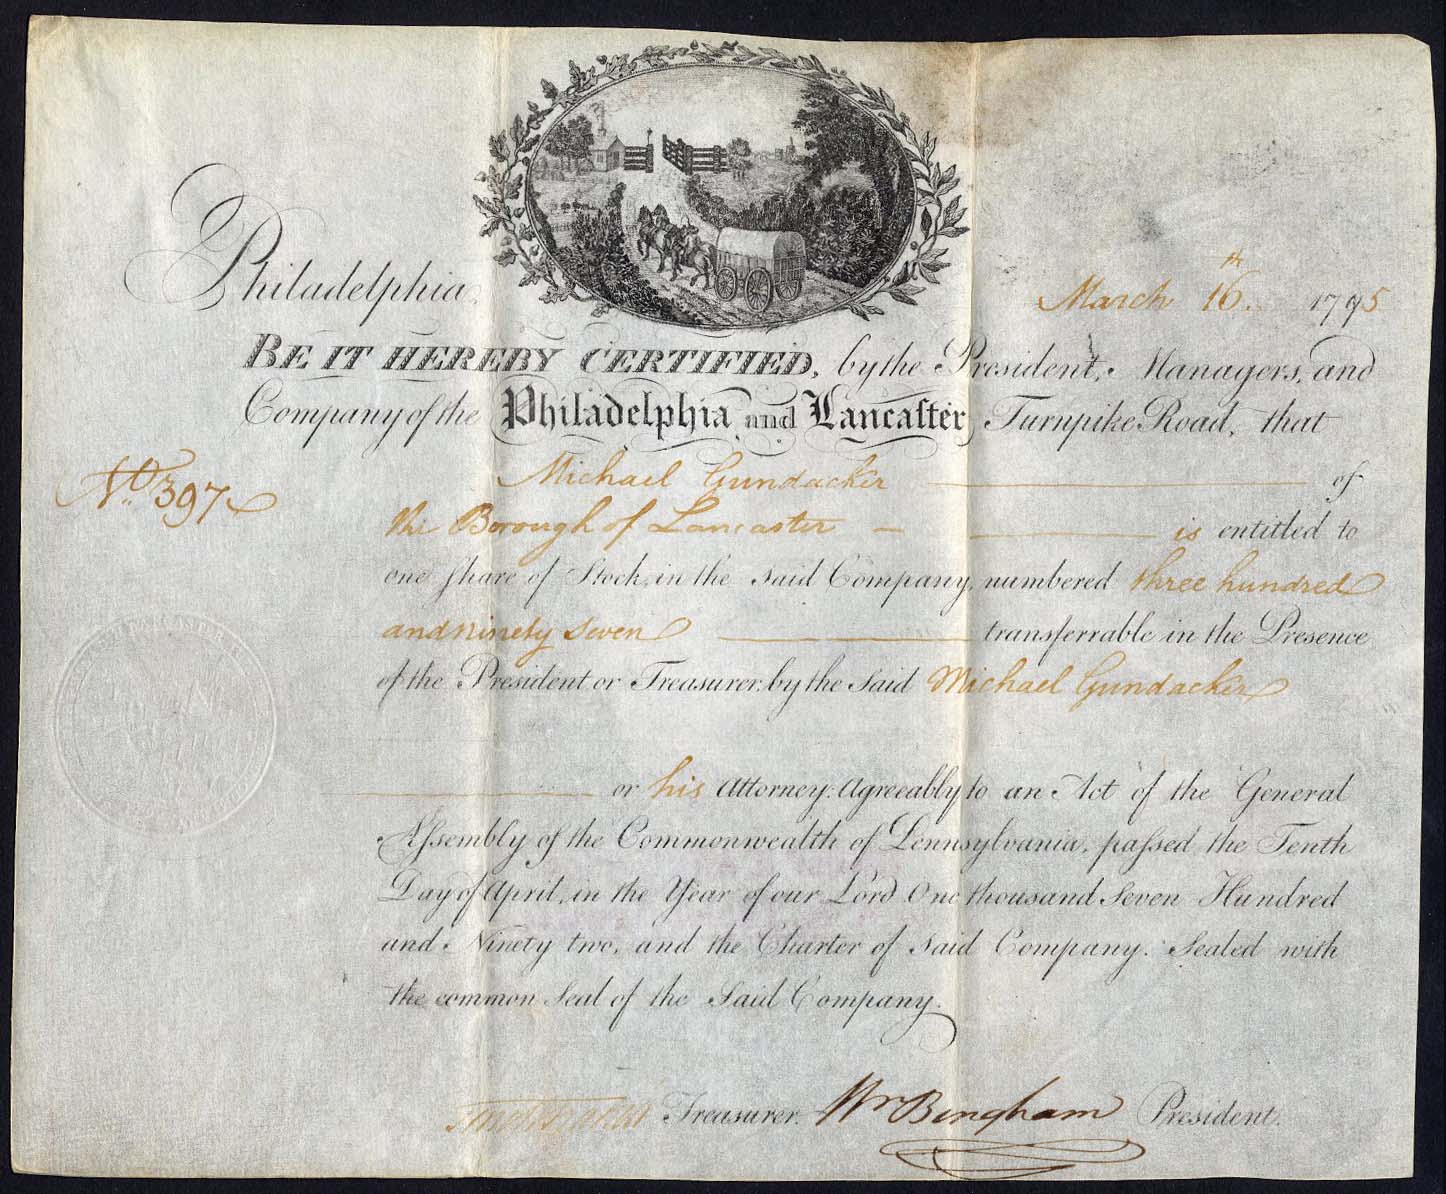 Philadelphia, March 16th. 1795
BE IT HEREBY CERTIFIED, by the President, Managers, and
Company of the Philadelphia and Lancaſter Turnpike Road, that
No. 397 Michael Gundacker of
the Borough of Lancaster is entitled to
one ſhare of Stock, in the said Company, numbered three hundred
and ninety seven transferrable in the Presence
of the President or Treasurer, by the said Michael Gundacker
or his Attorney: Agreeably to an Act of the General
Aſsembly of the Commonwealth of Pennsylvania, paſsed the Tenth
Day of April, in the Year of our Lord One thousand Seven Hundred
and Ninety two, and the Charter of said Company. Sealed with
the common Seal of the Said Company.
Treasurer. Wm Bingham President.